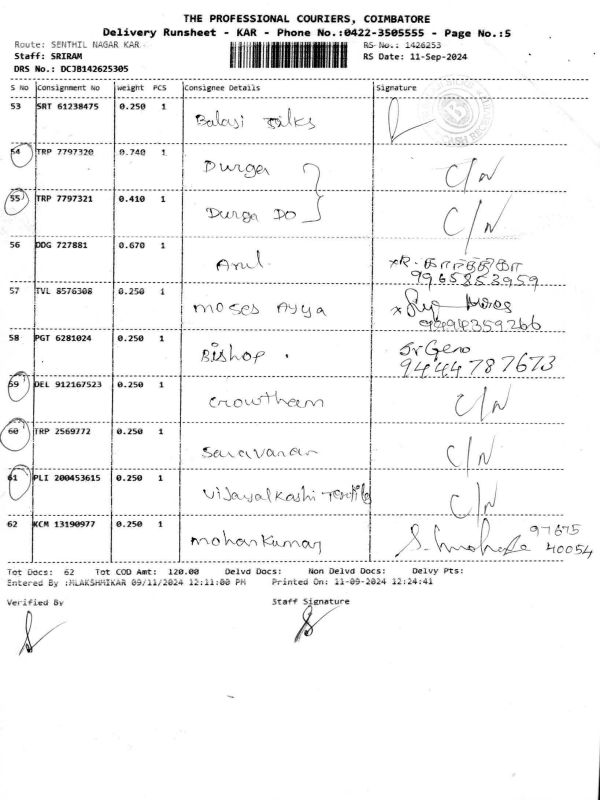 THE PROFESSIONAL COURIERS, COIMBATORE
Delivery Runsheet - KAR - Phone No.:0422-3505555 - Page No.:5
Route: SENTHIL NAGAR KAR RS No.: 1426253
Staff: SRIRAM RS Date: 11-Sep-2024
DRS No.: DCJB142625305
S No Consignment No Weight PCS Consignee Details Signature
53 SRT 61238475 0.250 1 Balaji
54 TRP 7797320 0.740 1 Durga C/N
55 TRP 7797321 0.410 1 Durga DO C/N
56 DDG 727881 0.670 1 Arul R. கார்த்திகா
9965853959
57 TVL 8576308 0.250 1 Moses Ayya
9494359266
58 PGT 6281024 0.250 1 Bishop Sr Geno
9444787673
59 DEL 912167523 0.250 1 Crowtham C/N
60 TRP 2569772 0.250 1 Saravanan C/N
61 PLI 200453615 0.250 1 Vijayalkashi Textile C/N
62 KCM 13190977 0.250 1 Mohankumar 97675
40054
Tot Docs: 62 Tot COD Amt: 120.00 Delvd Docs: Non Delvd Docs: Delvy Pts:
Entered By :MLAKSHMIKAR 09/11/2024 12:11:00 PM Printed On: 11-09-2024 12:24:41
Verified By Staff Signature